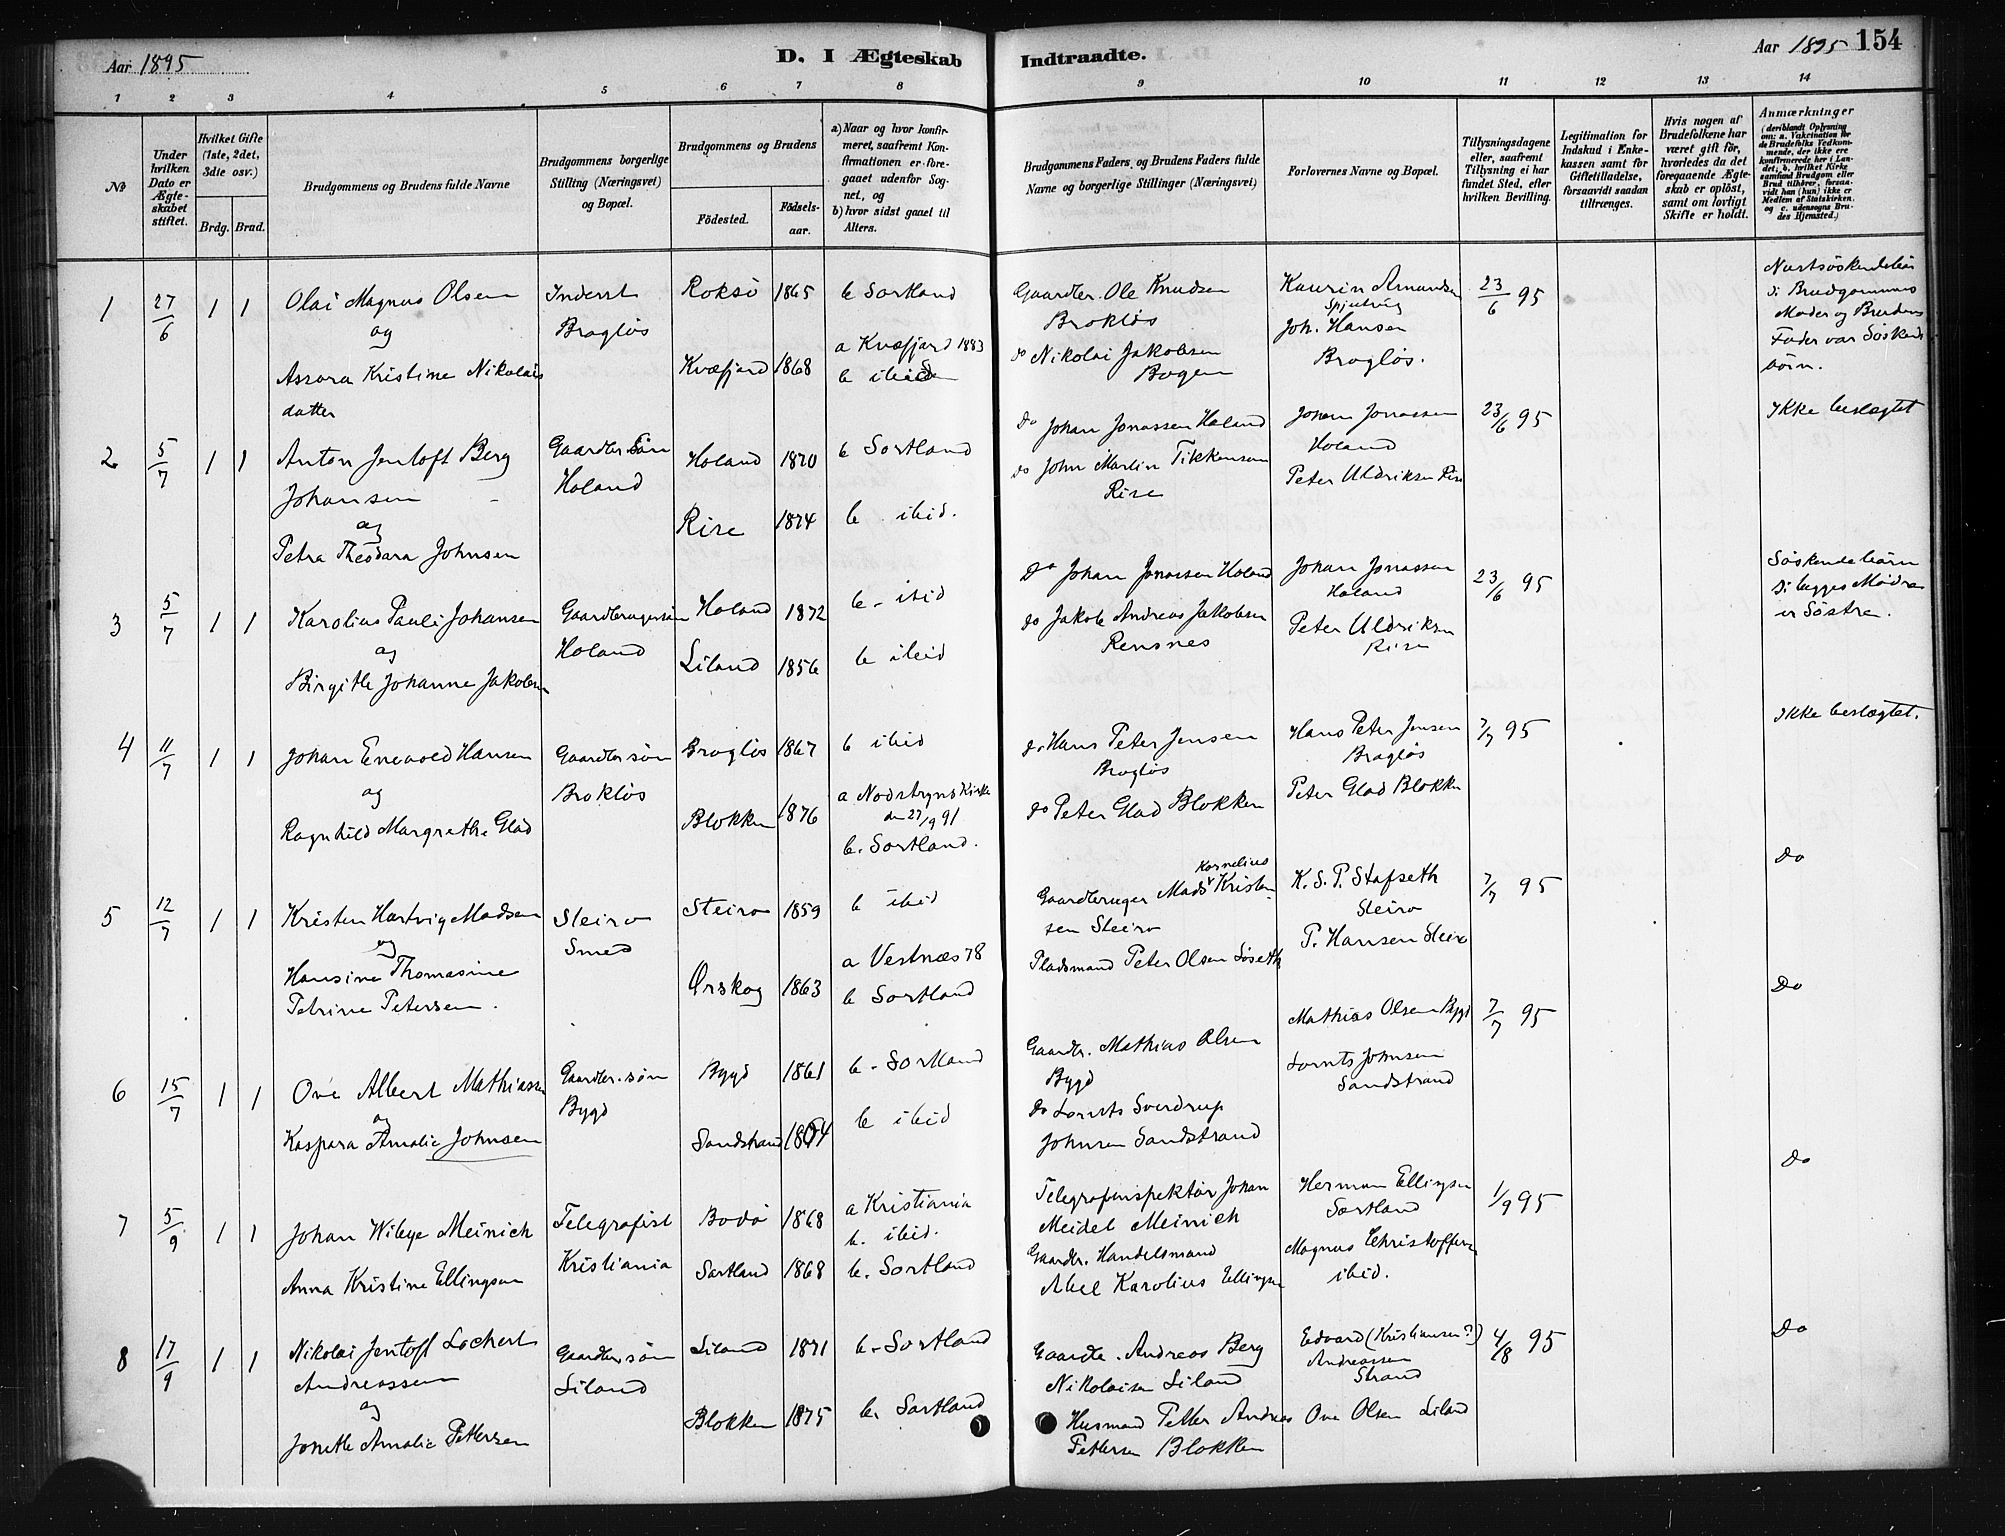 Aar 1895
D. I Ægteskab
Indtraadte.
Aar 1895 154
1 2 3 4 5 6 7 8 9 10 11 12 13 14
No
Under hvilken Dato er Ægteskabet stiftet.
Hvilket Gifte (1ste, 2det, 3die osv.)
Brdg. Brud.
Brudgommens og Brudens fulde Navne
Brudgommens borgerlige Stilling (Næringsvei) og Bopæl.
Brudgommens og Brudens
Fødested.
Fødsels-aar.
a) Naar og hvor konfirmeret, saafremt Konfirmationen er foregaaet udenfor Sognet, og
b) hvor sidst gaaet til Alters.
Brudgommens Faders og Brudens Faders fulde Navne og borgerlige Stillinger (Næringsvei)
Forlovernes Navne og Bopæl.
Tillysningsdagene eller, saafremt Tillysning ei har fundet Sted, efter hvilken Bevilling.
Legitimation for Indskud i Enkekassen samt for Giftetilladelse, forsaavidt saadan tiltrænges.
Hvis nogen af Brudefolkene har været gift før, hvorledes da det foregaaende Ægteskab er opløst, samt om lovligt Skifte er holdt.
Anmærkninger
(deriblandt Oplysning om: a. Vakcination for de Brudefolks Vedkommende, der ikke ere konfirmerede her i Landet; b. hvilket Kirkesamfund Brudgom eller Brud tilhører, forsaavidt han (hun) ikke er Medlem af Statskirken, og c. udensogns Brudes Hjemsted.)
1 27/6 1 1
Olai Magnus Olsen
og
Assora Kristine Nikolais
datter
Inderst
Brogløs
Roksø 1865
Kvæfjord 1868
b Sortland
a Kvæfjord 1883
b ibid
Gaardbr. Ole Knudsen
Brokløs
do Nikolai Jakobsen
Bogen
Kaurin Amundsen
Joh. Hansen
Brogløs.
23/6 95
Næstsøskendebørn
Brudgommens
Moder og Brudens
Fader var Søskende
børn.
2 5/7 1 1
Anton Jentoft Berg
Johansen
og
Petra Theodora Johnsen
Gaardbr. Søn
Holand
Holand 1870
Rise 1874
b Sortland
b ibid.
do Johan Jonassen Holand
do John Martin Tikkensen
Rise
Johan Jonassen
Holand
Peter Uldriksen Rise
23/6 95
Ikke beslægtet
3 5/7 1 1
Karolius Pauli Johansen
og
Birgitte Johanne Jakobsen
Gaardbrugersøn
Holand
Holand 1872
Liland 1856
b. ibid
b ibid
do Johan Jonassen Holand
do Jakob Andreas Jakobsen
Rensnes
Johan Jonassen
Holand
Peter Uldriksen
Rise
23/6 95
Søskendebørn
begges Mødre
er Søstre.
4 11/7 1 1
Johan Enevold Hansen
og
Ragnhild Margrethe Glad
Gaardbr søn
Brokløs
Brogløs 1867
Blokken 1876
b ibid
a Nordstryns Kirke
den 27/9 91
b. Sortland.
do Hans Peter Jensen
Brogløs
do Peter Glad Blokken
Hans Peter Jensen
Brogløs
Peter Glad Blokken
7/7 95
Ikke beslægtet.
5 12/7 1 1
Kristen Hartvig Madsen
og
Hansine Thomasine
Petrine Petersen.
Steiro
Smed
Steiro 1859
Ørskog 1863
b ibid
a Vestnæs 78
b Sortland
Kornelius
Gaardbruger Mads Kristen
sen Steiro
Pladsmand Peter Olsen Løseth
K. S. P. Stafseth
Steiro
P. Hansen Steiro
7/7 95
Do
6 15/7 1 1
Ove Albert Mathiassen
og
Kaspara Amalie Johnsen
Gaardbr. søn
Bygd
Bygd 1861
Sandstrand
b. Sortland
b ibid
Gaardbr. Mathias Olsen
Bygd
do Lornts Sverdrup
Johnsen Sandstrand
Mathias Olsen Bygd
Lornts Johnsen
Sandstrand
7/7 95
Do
7 5/9 1 1
Johan Wibye Meinich
Anna Kristine Ellingsen
Telegrafist
Kristiania
Bodø 1868
Sortland 1868
a Kristiania
b. ibid.
b. Sortland
Telegrafinspektør Johan
Meidel Meinich
Gaardbr. Handelsmand
Abel Karolius Ellingsen
Herman Ellingsen
Sortland
Magnus Christoffersen
ibid.
1/9 95
Do
8 17/9 1 1
Nikolai Jentoft Lockert
Andreassen
og
Jonette Amalie Pettersen
Gaardbr søn
Liland
Liland 1871
Blokken 1875
b. Sortland
b. Sortland
Gaardbr. Andreas Berg
Nikolaisen Liland
Husmand Petter Andreas
Pettersen Blokken
Edvard (Kristiansen?)
Andreassen
Strand
Ove Olsen Liland
4/8 95
Do